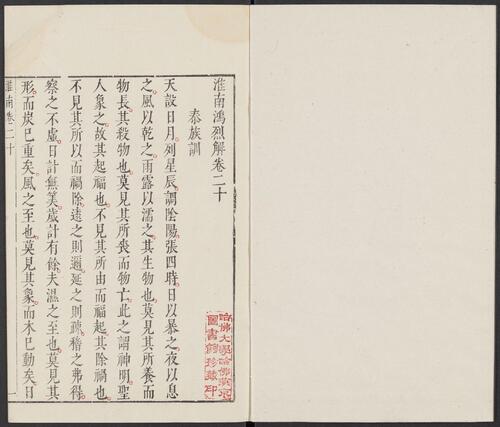 淮南鴻烈解卷二十
泰族訓
天設日月列星辰調陰陽張四時日以暴之夜以息
之風以乾之雨露以濡之其生物也莫見其所養而
物長其殺物也莫見其所喪而物亡此之謂神明聖
人象之故其起福也不見其所由而福起其除禍也
不見其所以而禍除遠之則邇延之則疏稽之弗得
察之不虛日計無筭歲計有餘夫濕之至也莫見其
形而炭已重矣風之至也莫見其象而木已動矣日
淮南卷二十
哈佛大學哈佛燕京
圖書館珍藏印